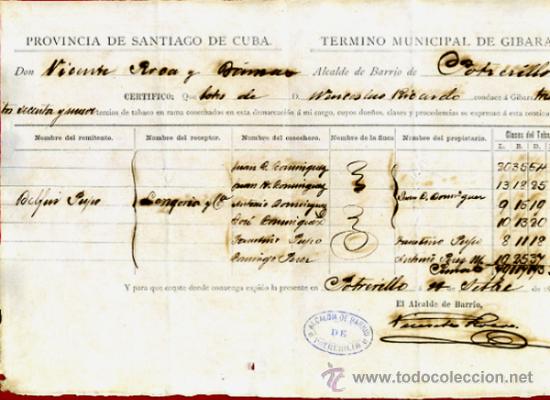 PROVINCIA DE SANTIAGO DE CUBA. TERMINO MUNICIPAL DE GIBARA
Don Vicente Roa y Dimas Alcalde de Barrio de Potrerillo
CERTIFICO: Que lotro de D. Wenceslao Ricardo conduce á Gibara
tercios de tabaco en rama cosechados en esta demarcación á mi cargo, cuyos dueños, clases y procedencias se expresan á esta
Nombre del remitente. Nombre del receptor. Nombre del cosechero. Nombre de la finca Nombre del propietario. Clases del Taba
L. B. D.
Juan E. Dominguez 20 35 54
Juan N. Dominguez 13 12 25
Delfin Pupo Longoria y Ca Antonio Dominguez Juan E. Dominguez 9 15 19
José Dominguez 10 13 20
Faustino Pupo Faustino Pupo 8 11 18
Domingo Perez Antonio Perez M. 10 25 37
Y para que conste donde convenga expido la presente en Potrerillo á de Setbre de
El Alcalde de Barrio,
Vicente Roa
ALCALDIA DE BARRIO
DE
POTRERILLO
www.todocoleccion.net